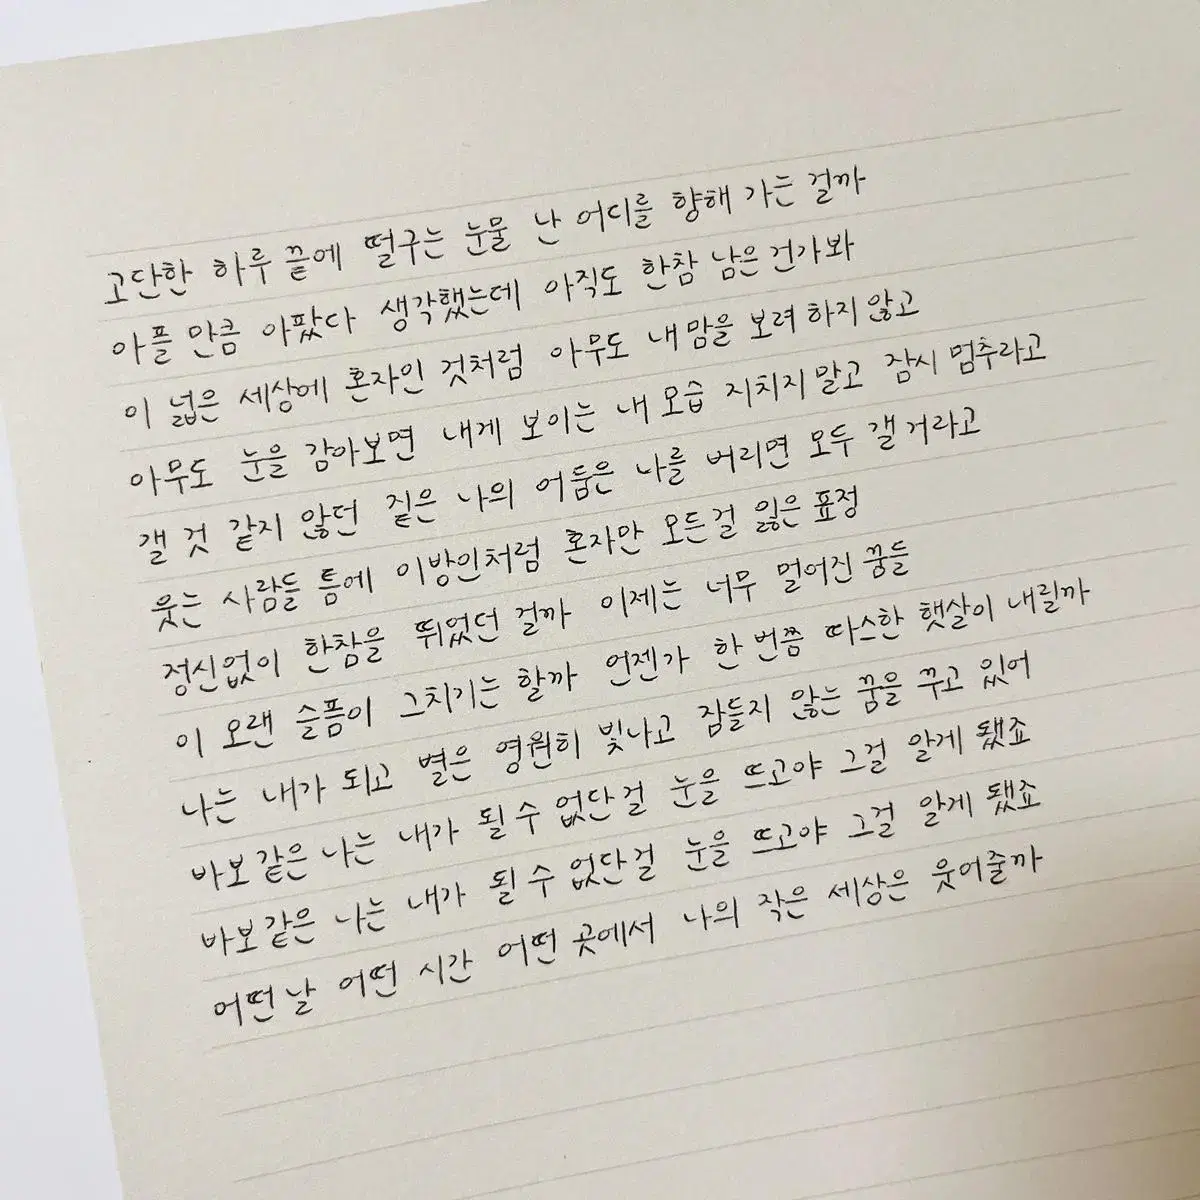 고단한 하루 끝에 떨구는 눈물 난 어디를 향해 가는 걸까
아플 만큼 아팠다 생각했는데 아직도 한참 남은 건가봐
이 넓은 세상에 혼자인 것처럼 아무도 내 맘을 보려 하지 않고
아무도 눈을 감아보면 내게 보이는 내 모습 지치지 말고 잠시 멈추라고
갤 것 같지 않던 짙은 나의 어둠은 나를 버리면 모두 갤 거라고
웃는 사람들 틈에 이방인처럼 혼자만 모든걸 잃은 표정
정신없이 한참을 뛰었던 걸까 이제는 너무 멀어진 꿈들
이 오랜 슬픔이 그치기는 할까 언젠가 한 번쯤 따스한 햇살이 내릴까
나는 내가 되고 별은 영원히 빛나고 잠들지 않는 꿈을 꾸고 있어
바보같은 나는 내가 될 수 없단 걸 눈을 뜨고야 그걸 알게 됐죠
바보같은 나는 내가 될 수 없단 걸 눈을 뜨고야 그걸 알게 됐죠
어떤 날 어떤 시간 어떤 곳에서 나의 작은 세상은 웃어줄까